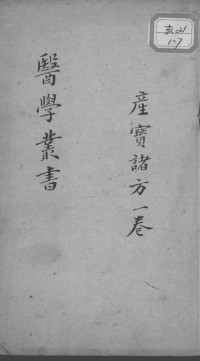 醫學叢書
產寶諸方一卷
1-7